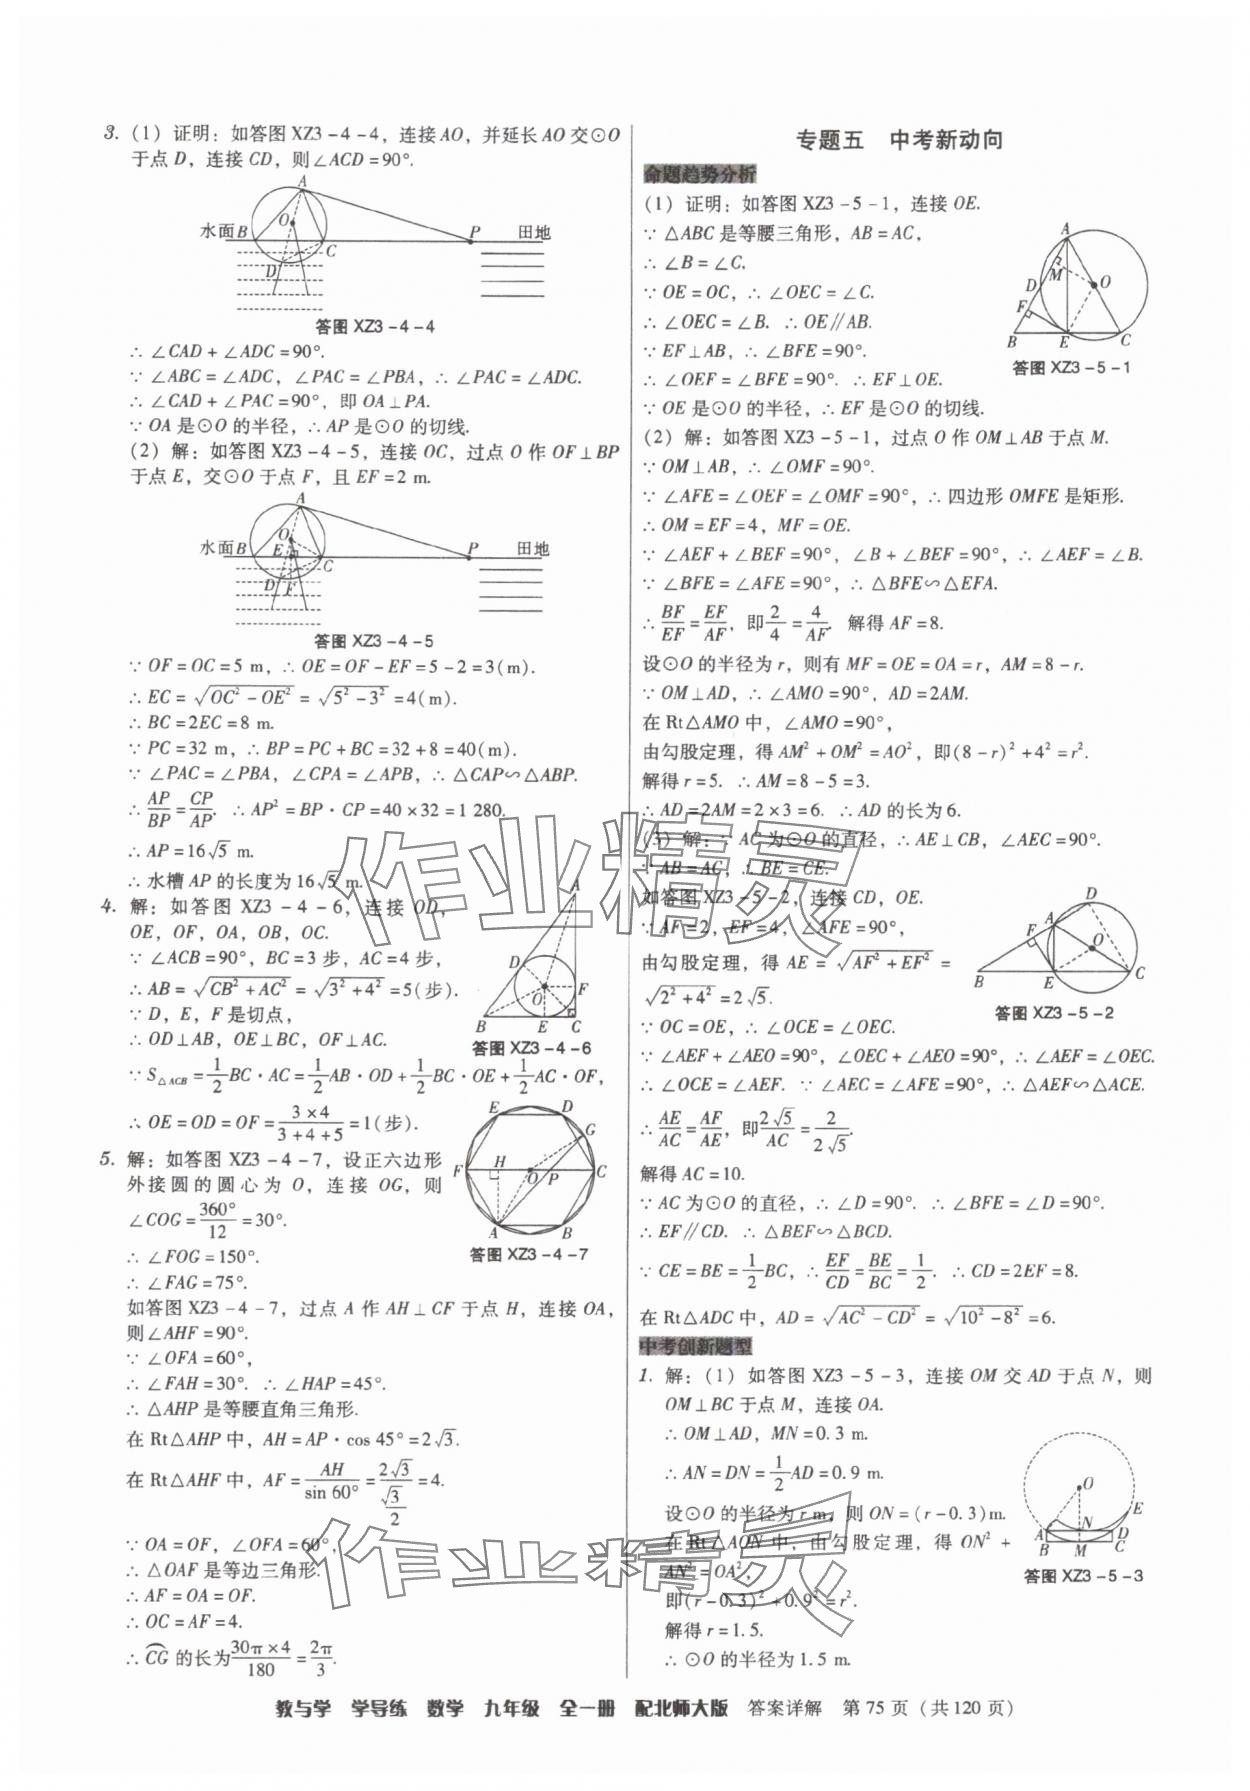 3. (1) 证明：如答图 XZ3-4-4，连接 AO，并延长 AO 交⊙O
于点 D，连接 CD，则∠ACD=90°.
A
O
水面 B
C
D
P
田地
答图 XZ3-4-4
∴ ∠CAD+∠ADC=90°.
∵ ∠ABC=∠ADC，∠PAC=∠PBA，∴ ∠PAC=∠ADC.
∴ ∠CAD+∠PAC=90°，即 OA⊥PA.
∵ OA 是⊙O 的半径，∴ AP 是⊙O 的切线.
(2) 解：如答图 XZ3-4-5，连接 OC，过点 O 作 OF⊥BP
于点 E，交⊙O 于点 F，且 EF=2 m.
A
O
水面 B
E
C
D
F
P
田地
答图 XZ3-4-5
∵ OF=OC=5 m，∴ OE=OF-EF=5-2=3(m).
∴ EC=√(OC²-OE²)=√(5²-3²)=4(m).
∴ BC=2EC=8 m.
∵ PC=32 m，∴ BP=PC+BC=32+8=40(m).
∵ ∠PAC=∠PBA，∠CPA=∠APB，∴ △CAP∽△ABP.
∴ AP/BP=CP/AP. ∴ AP²=BP·CP=40×32=1 280.
∴ AP=16√5 m.
∴ 水槽 AP 的长度为 16√5 m.
4. 解：如答图 XZ3-4-6，连接 OD，
OE，OF，OA，OB，OC.
∵ ∠ACB=90°，BC=3 步，AC=4 步，
∴ AB=√(CB²+AC²)=√(3²+4²)=5(步).
∵ D，E，F 是切点，
∴ OD⊥AB，OE⊥BC，OF⊥AC.
A
D
O
F
B
E
C
答图 XZ3-4-6
∵ S△ACB=1/2 BC·AC=1/2 AB·OD+1/2 BC·OE+1/2 AC·OF，
∴ OE=OD=OF=(3×4)/(3+4+5)=1(步).
5. 解：如答图 XZ3-4-7，设正六边形
外接圆的圆心为 O，连接 OG，则
∠COG=360°/12=30°.
∴ ∠FOG=150°.
∴ ∠FAG=75°.
E
D
G
F
H
O
P
C
A
B
答图 XZ3-4-7
如答图 XZ3-4-7，过点 A 作 AH⊥CF 于点 H，连接 OA，
则∠AHF=90°.
∵ ∠OFA=60°，
∴ ∠FAH=30°. ∴ ∠HAP=45°.
∴ △AHP 是等腰直角三角形.
在 Rt△AHP 中，AH=AP·cos 45°=2√3.
在 Rt△AHF 中，AF=AH/sin 60°=2√3/(√3/2)=4.
∵ OA=OF，∠OFA=60°，
∴ △OAF 是等边三角形.
∴ AF=OA=OF.
∴ OC=AF=4.
∴ ⌒CG 的长为(30π×4)/180=2π/3.
专题五 中考新动向
命题趋势分析
(1) 证明：如答图 XZ3-5-1，连接 OE.
∵ △ABC 是等腰三角形，AB=AC，
∴ ∠B=∠C.
∵ OE=OC，∴ ∠OEC=∠C.
∴ ∠OEC=∠B. ∴ OE∥AB.
∵ EF⊥AB，∴ ∠BFE=90°.
∴ ∠OEF=∠BFE=90°. ∴ EF⊥OE.
∵ OE 是⊙O 的半径，∴ EF 是⊙O 的切线.
A
M
D
O
F
B
E
C
答图 XZ3-5-1
(2) 解：如答图 XZ3-5-1，过点 O 作 OM⊥AB 于点 M.
∵ OM⊥AB，∴ ∠OMF=90°.
∵ ∠AFE=∠OEF=∠OMF=90°，∴ 四边形 OMFE 是矩形.
∴ OM=EF=4，MF=OE.
∵ ∠AEF+∠BEF=90°，∠B+∠BEF=90°，∴ ∠AEF=∠B.
∵ ∠BFE=∠AFE=90°，∴ △BFE∽△EFA.
∴ BF/EF=EF/AF，即 2/4=4/AF. 解得 AF=8.
设⊙O 的半径为 r，则有 MF=OE=OA=r，AM=8-r.
∵ OM⊥AD，∴ ∠AMO=90°，AD=2AM.
在 Rt△AMO 中，∠AMO=90°，
由勾股定理，得 AM²+OM²=AO²，即(8-r)²+4²=r².
解得 r=5. ∴ AM=8-5=3.
∴ AD=2AM=2×3=6. ∴ AD 的长为 6.
(3) 解：∵ AC 为⊙O 的直径，∴ AE⊥CB，∠AEC=90°.
∵ AB=AC，∴ BE=CE.
如答图 XZ3-5-2，连接 CD，OE.
∵ AF=2，EF=4，∠AFE=90°，
由勾股定理，得 AE=√(AF²+EF²)=
√(2²+4²)=2√5.
∵ OC=OE，∴ ∠OCE=∠OEC.
D
A
F
O
B
E
C
答图 XZ3-5-2
∵ ∠AEF+∠AEO=90°，∠OEC+∠AEO=90°，∴ ∠AEF=∠OEC.
∴ ∠OCE=∠AEF. ∵ ∠AEC=∠AFE=90°，∴ △AEF∽△ACE.
∴ AE/AC=AF/AE，即 2√5/AC=2/2√5.
解得 AC=10.
∵ AC 为⊙O 的直径，∴ ∠D=90°. ∴ ∠BFE=∠D=90°.
∴ EF∥CD. ∴ △BEF∽△BCD.
∵ CE=BE=1/2 BC，∴ EF/CD=BE/BC=1/2. ∴ CD=2EF=8.
在 Rt△ADC 中，AD=√(AC²-CD²)=√(10²-8²)=6.
中考创新题型
1. 解：(1) 如答图 XZ3-5-3，连接 OM 交 AD 于点 N，则
OM⊥BC 于点 M，连接 OA.
∴ OM⊥AD，MN=0.3 m.
∴ AN=DN=1/2 AD=0.9 m.
设⊙O 的半径为 r m，则 ON=(r-0.3)m.
在 Rt△AON 中，由勾股定理，得 ON²+
AN²=OA²，
即(r-0.3)²+0.9²=r².
解得 r=1.5.
∴ ⊙O 的半径为 1.5 m.
O
E
A
N
D
B
M
C
答图 XZ3-5-3
作业精灵
作业精灵
教与学 学导练 数学 九年级 全一册 配北师大版 答案详解 第 75 页（共 120 页）